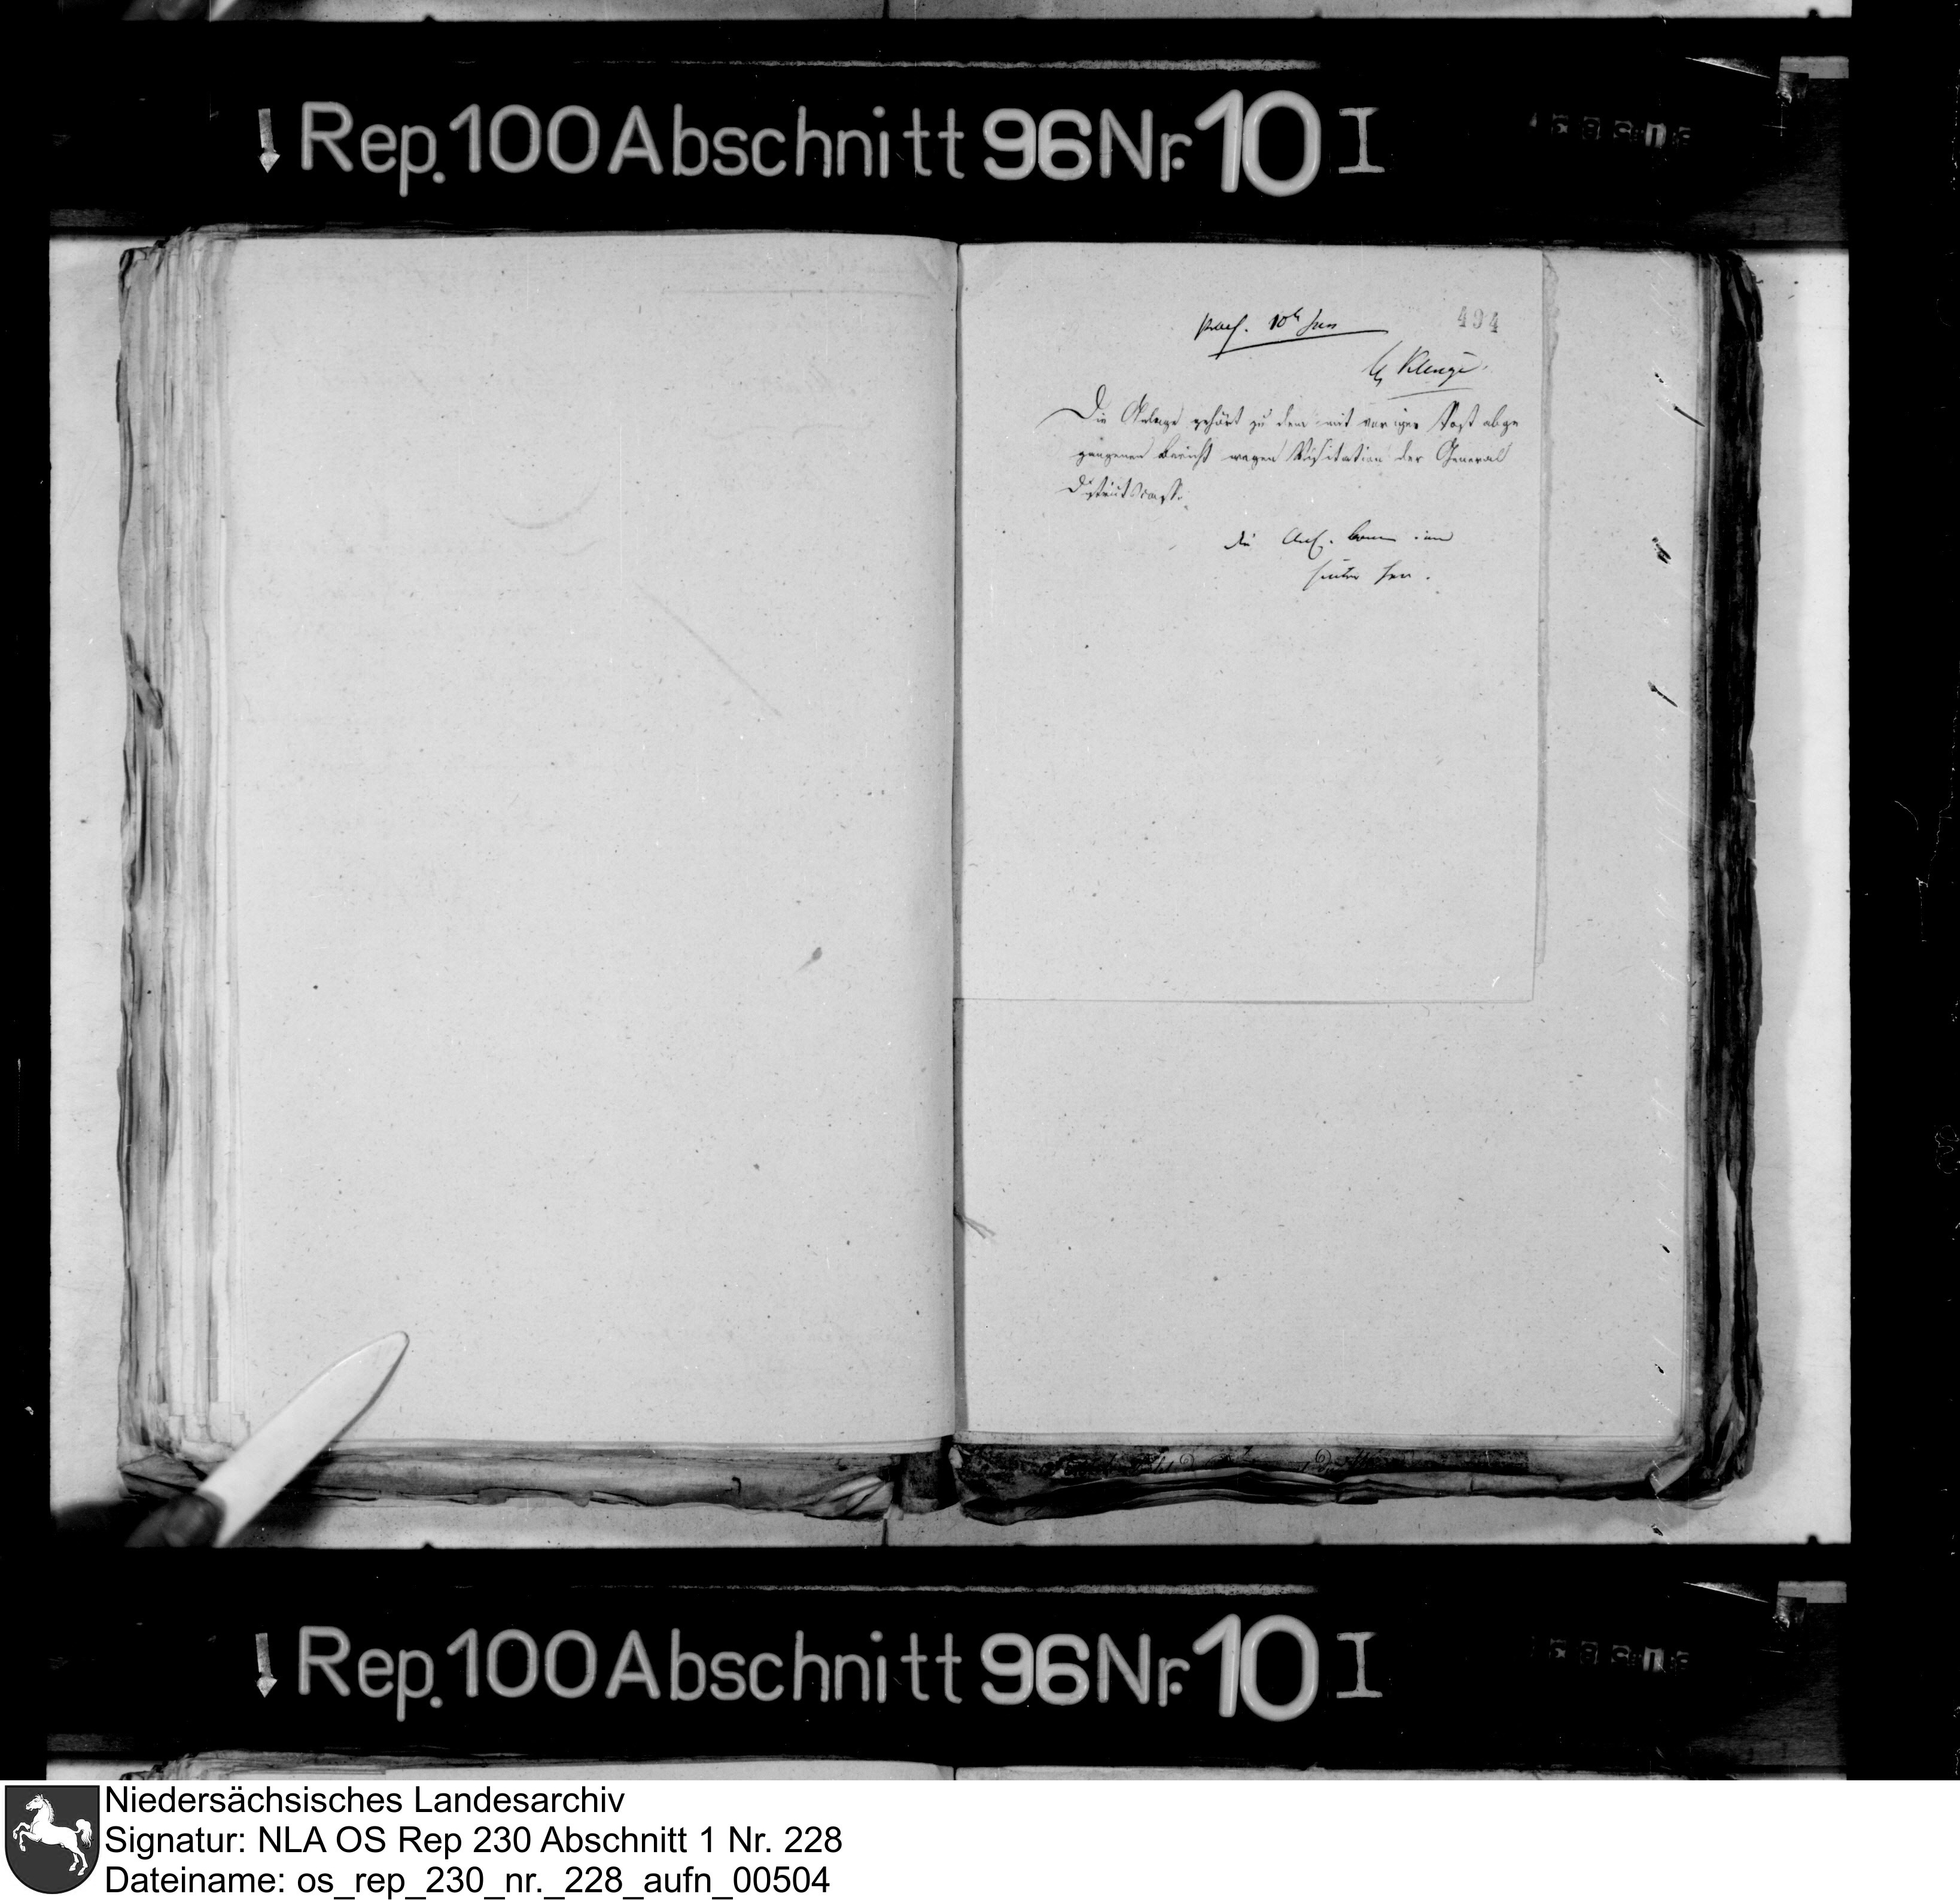 Rep. 100 Abschnitt 96 Nr. 10 I
494
praes. 10t Jun
Klenze.
Die Anlage gehört zu dem mit voriger Post abge
gangenen Bericht wegen Visitation der General
die Anl. kam
hinter her.
Rep. 100 Abschnitt 96 Nr. 10 I
Niedersächsisches Landesarchiv
Signatur: NLA OS Rep 230 Abschnitt 1 Nr. 228
Dateiname: os_rep_230_nr._228_aufn_00504